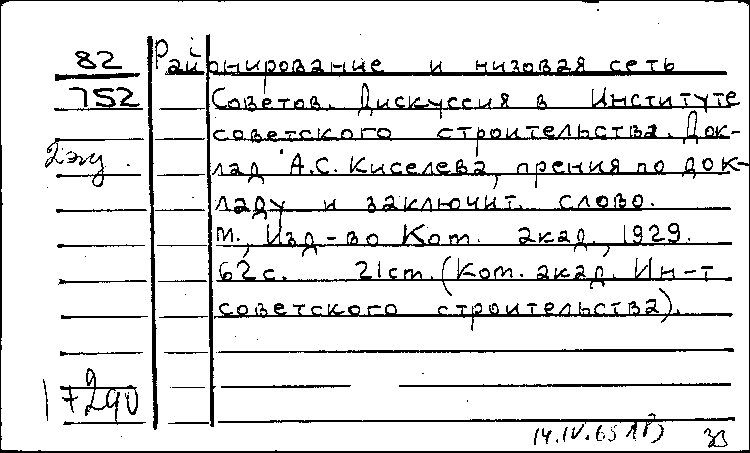 82 Районирование и низовая сеть
752 Советов. Дискуссия в Институте
советского строительства. Док-
2 экз. лад А.С. Киселева, прения по док-
ладу и заключит. слово.
М., Изд-во Ком. акад., 1929.
62 с. 21 cm. (Ком. акад. Ин-т
советского строительства).
17290
14.IV.65